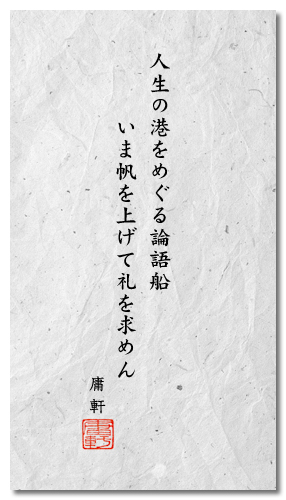 人生の港をめぐる論語船
いま帆を上げて礼を求めん
庸軒